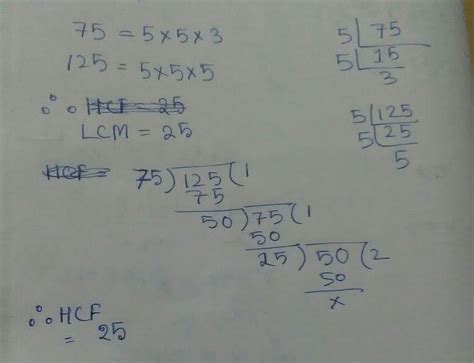 75 = 5×5×3
125 = 5×5×5
∴ HCF = 25
LCM = 25
5 | 75
5 | 15
3
5 | 125
5 | 25
5
HCF=
75) 125 (1
75
50) 75 (1
50
25) 50 (2
50
x
∴ HCF
= 25